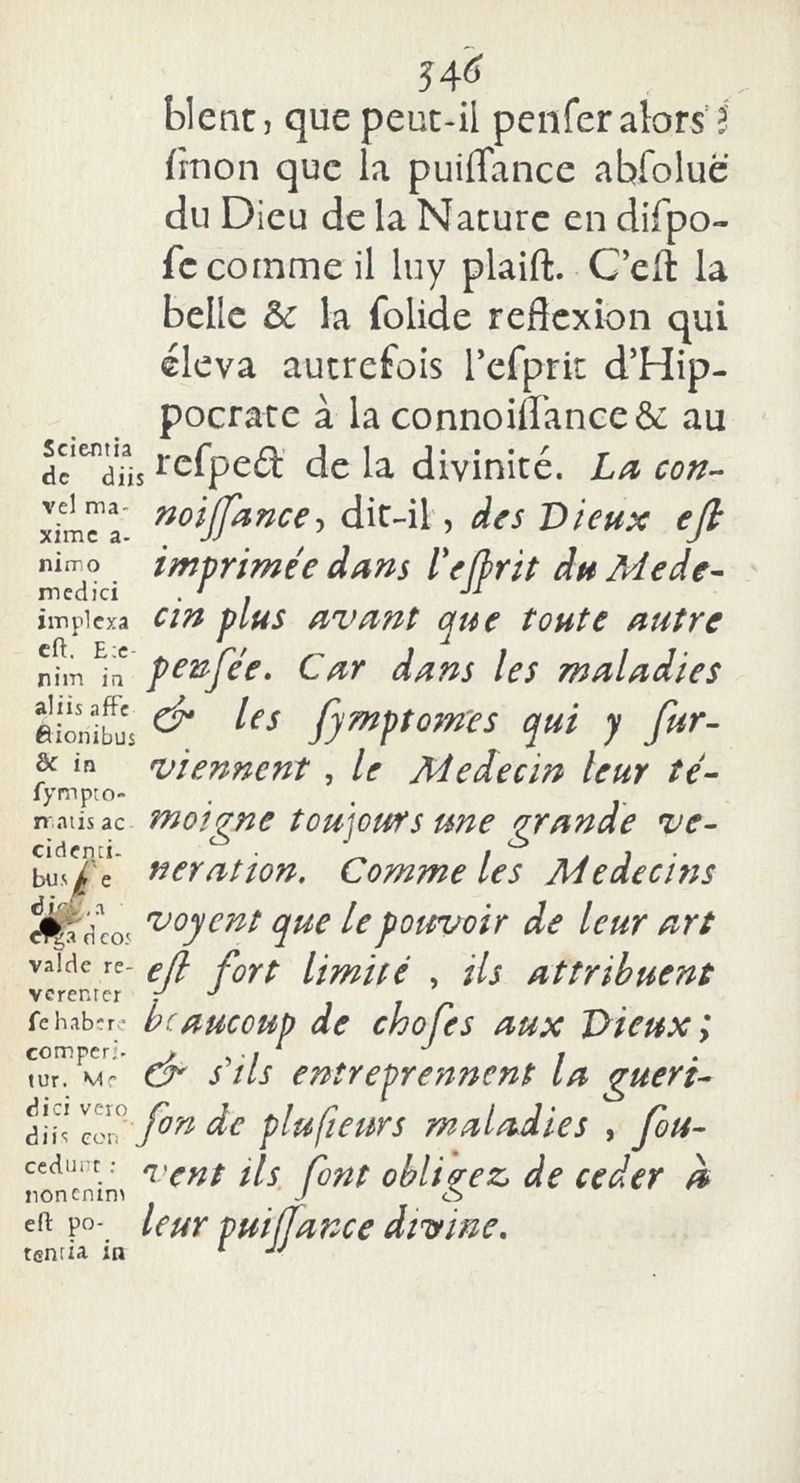 346
blent, que peut-il penſer alors ?
ſinon que la puiſſance abſoluë
du Dieu de la Nature en diſpo-
ſe comme il luy plaiſt. C'eſt la
belle & la ſolide reflexion qui
éleva autrefois l'eſprit d'Hip-
pocrate à la connoiſſance & au
reſpect de la divinité. La con-
noiſſance, dit-il, des Dieux eſt
imprimée dans l'eſprit du Mede-
cin plus avant que toute autre
penſée. Car dans les maladies
& les ſymptomes qui y ſur-
viennent, le Medecin leur té-
moigne toujours une grande ve-
neration. Comme les Medecins
voyent que le pouvoir de leur art
eſt fort limité, ils attribuent
beaucoup de choſes aux Dieux;
& s'ils entreprennent la gueri-
ſon de pluſieurs maladies, ſou-
vent ils ſont obligez de ceder à
leur puiſſance divine.
Scientia
de diis
vel ma-
xime a-
nimo
medici
implexa
eſt. Ete-
nim in
aliis affe
ctionibus
& in
ſympto-
matis ac-
cidenti-
bus
erga deos
valde re-
verenter
ſe habere
comperi-
tur. Me
dici vero
diis con
cedunt :
non enim
eſt po-
tentia in